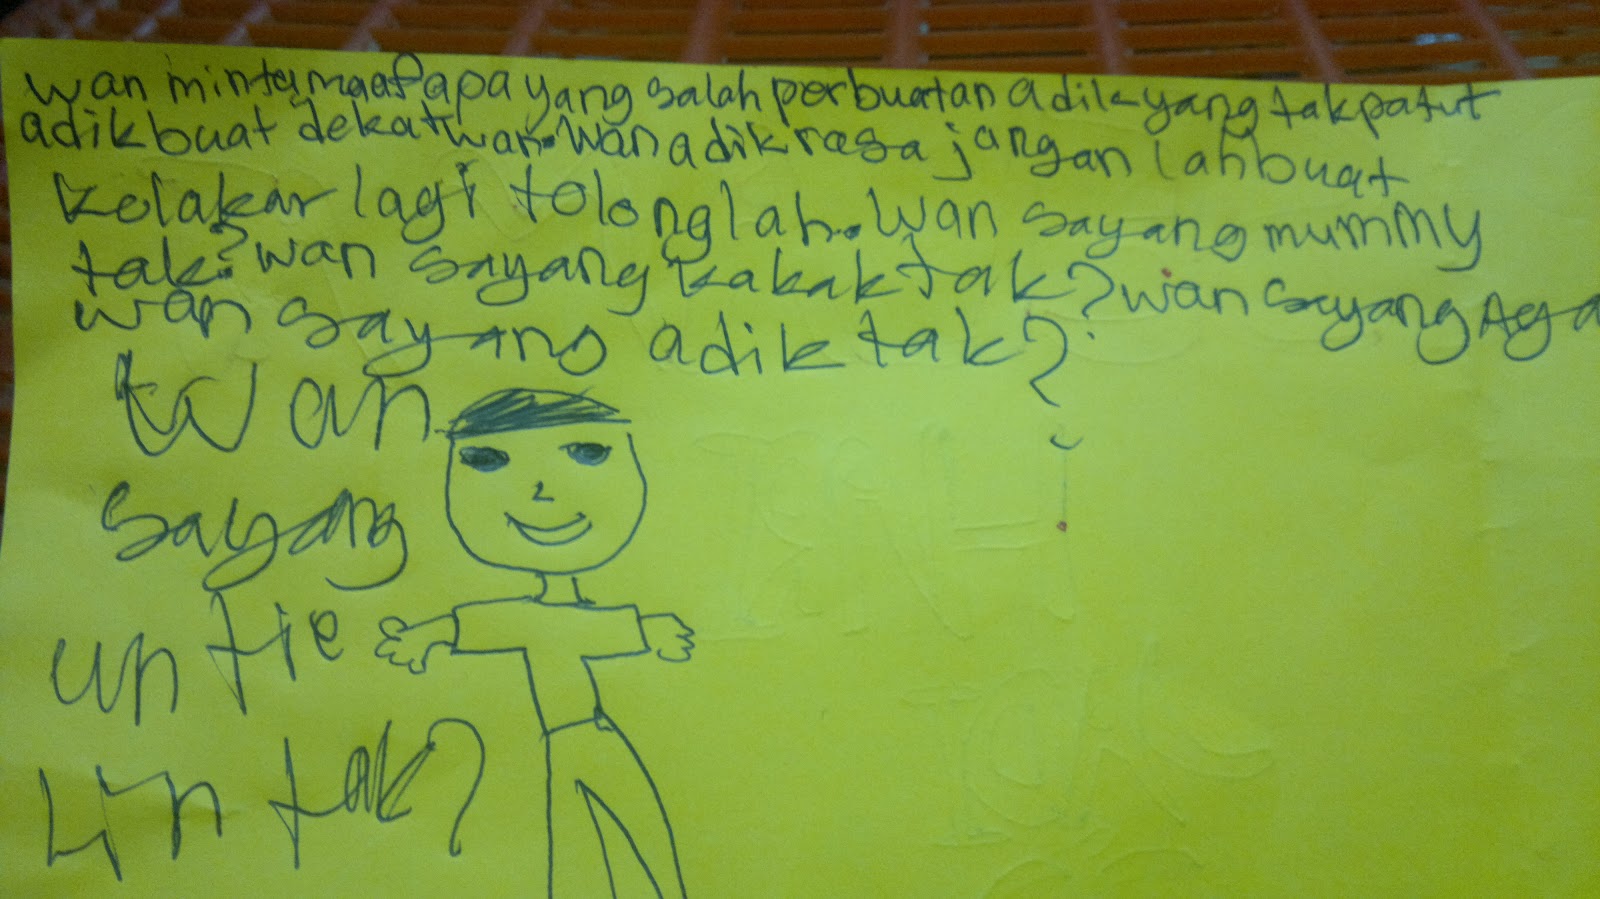 wan minta maaf apa yang salah perbuatan adik yang tak patut
adik buat dekat wan. wan adik rasa jangan lah buat
kelakar lagi tolong lah. wan sayang mummy
tak? wan sayang kakak tak? wan sayang Aya
wan sayang adik tak?
wan
sayang
untie
Lin tak?